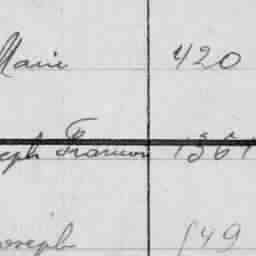 Marie 420
eph Francois 1361
oseph 149